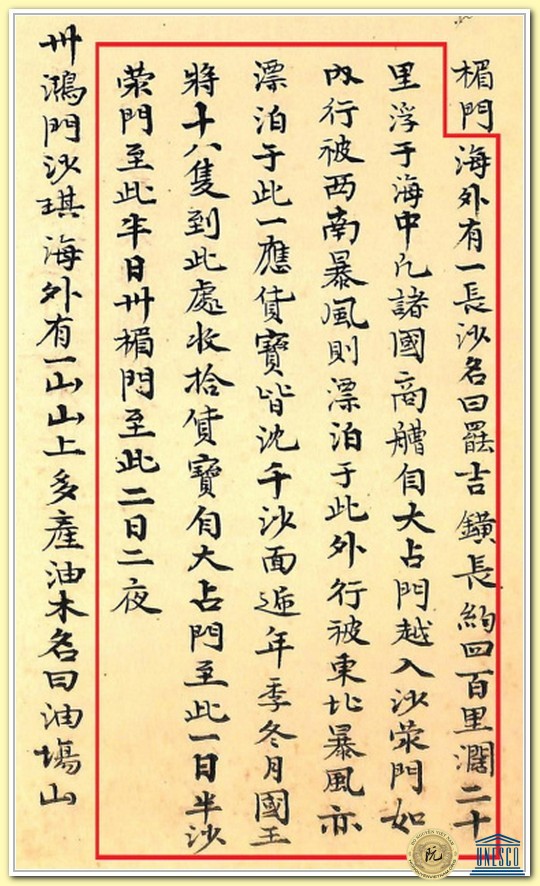 楣門海外有一長沙名曰罷吉鐄長約四百里濶二十
里浮于海中凢諸國商艚自大占門越入沙荥門如
内行被西南暴風則漂泊于此外行被東北暴風亦
漂泊于此一應貨寶皆沈千沙面逓年季冬月國王
將十八隻到此處收拾貨寶自大占門至此一日半沙
荥門至此半日卅楣門至此二日二夜
卅鴻門沙琪海外有一山山上多產油木名曰油塲山
阮
UNESCO